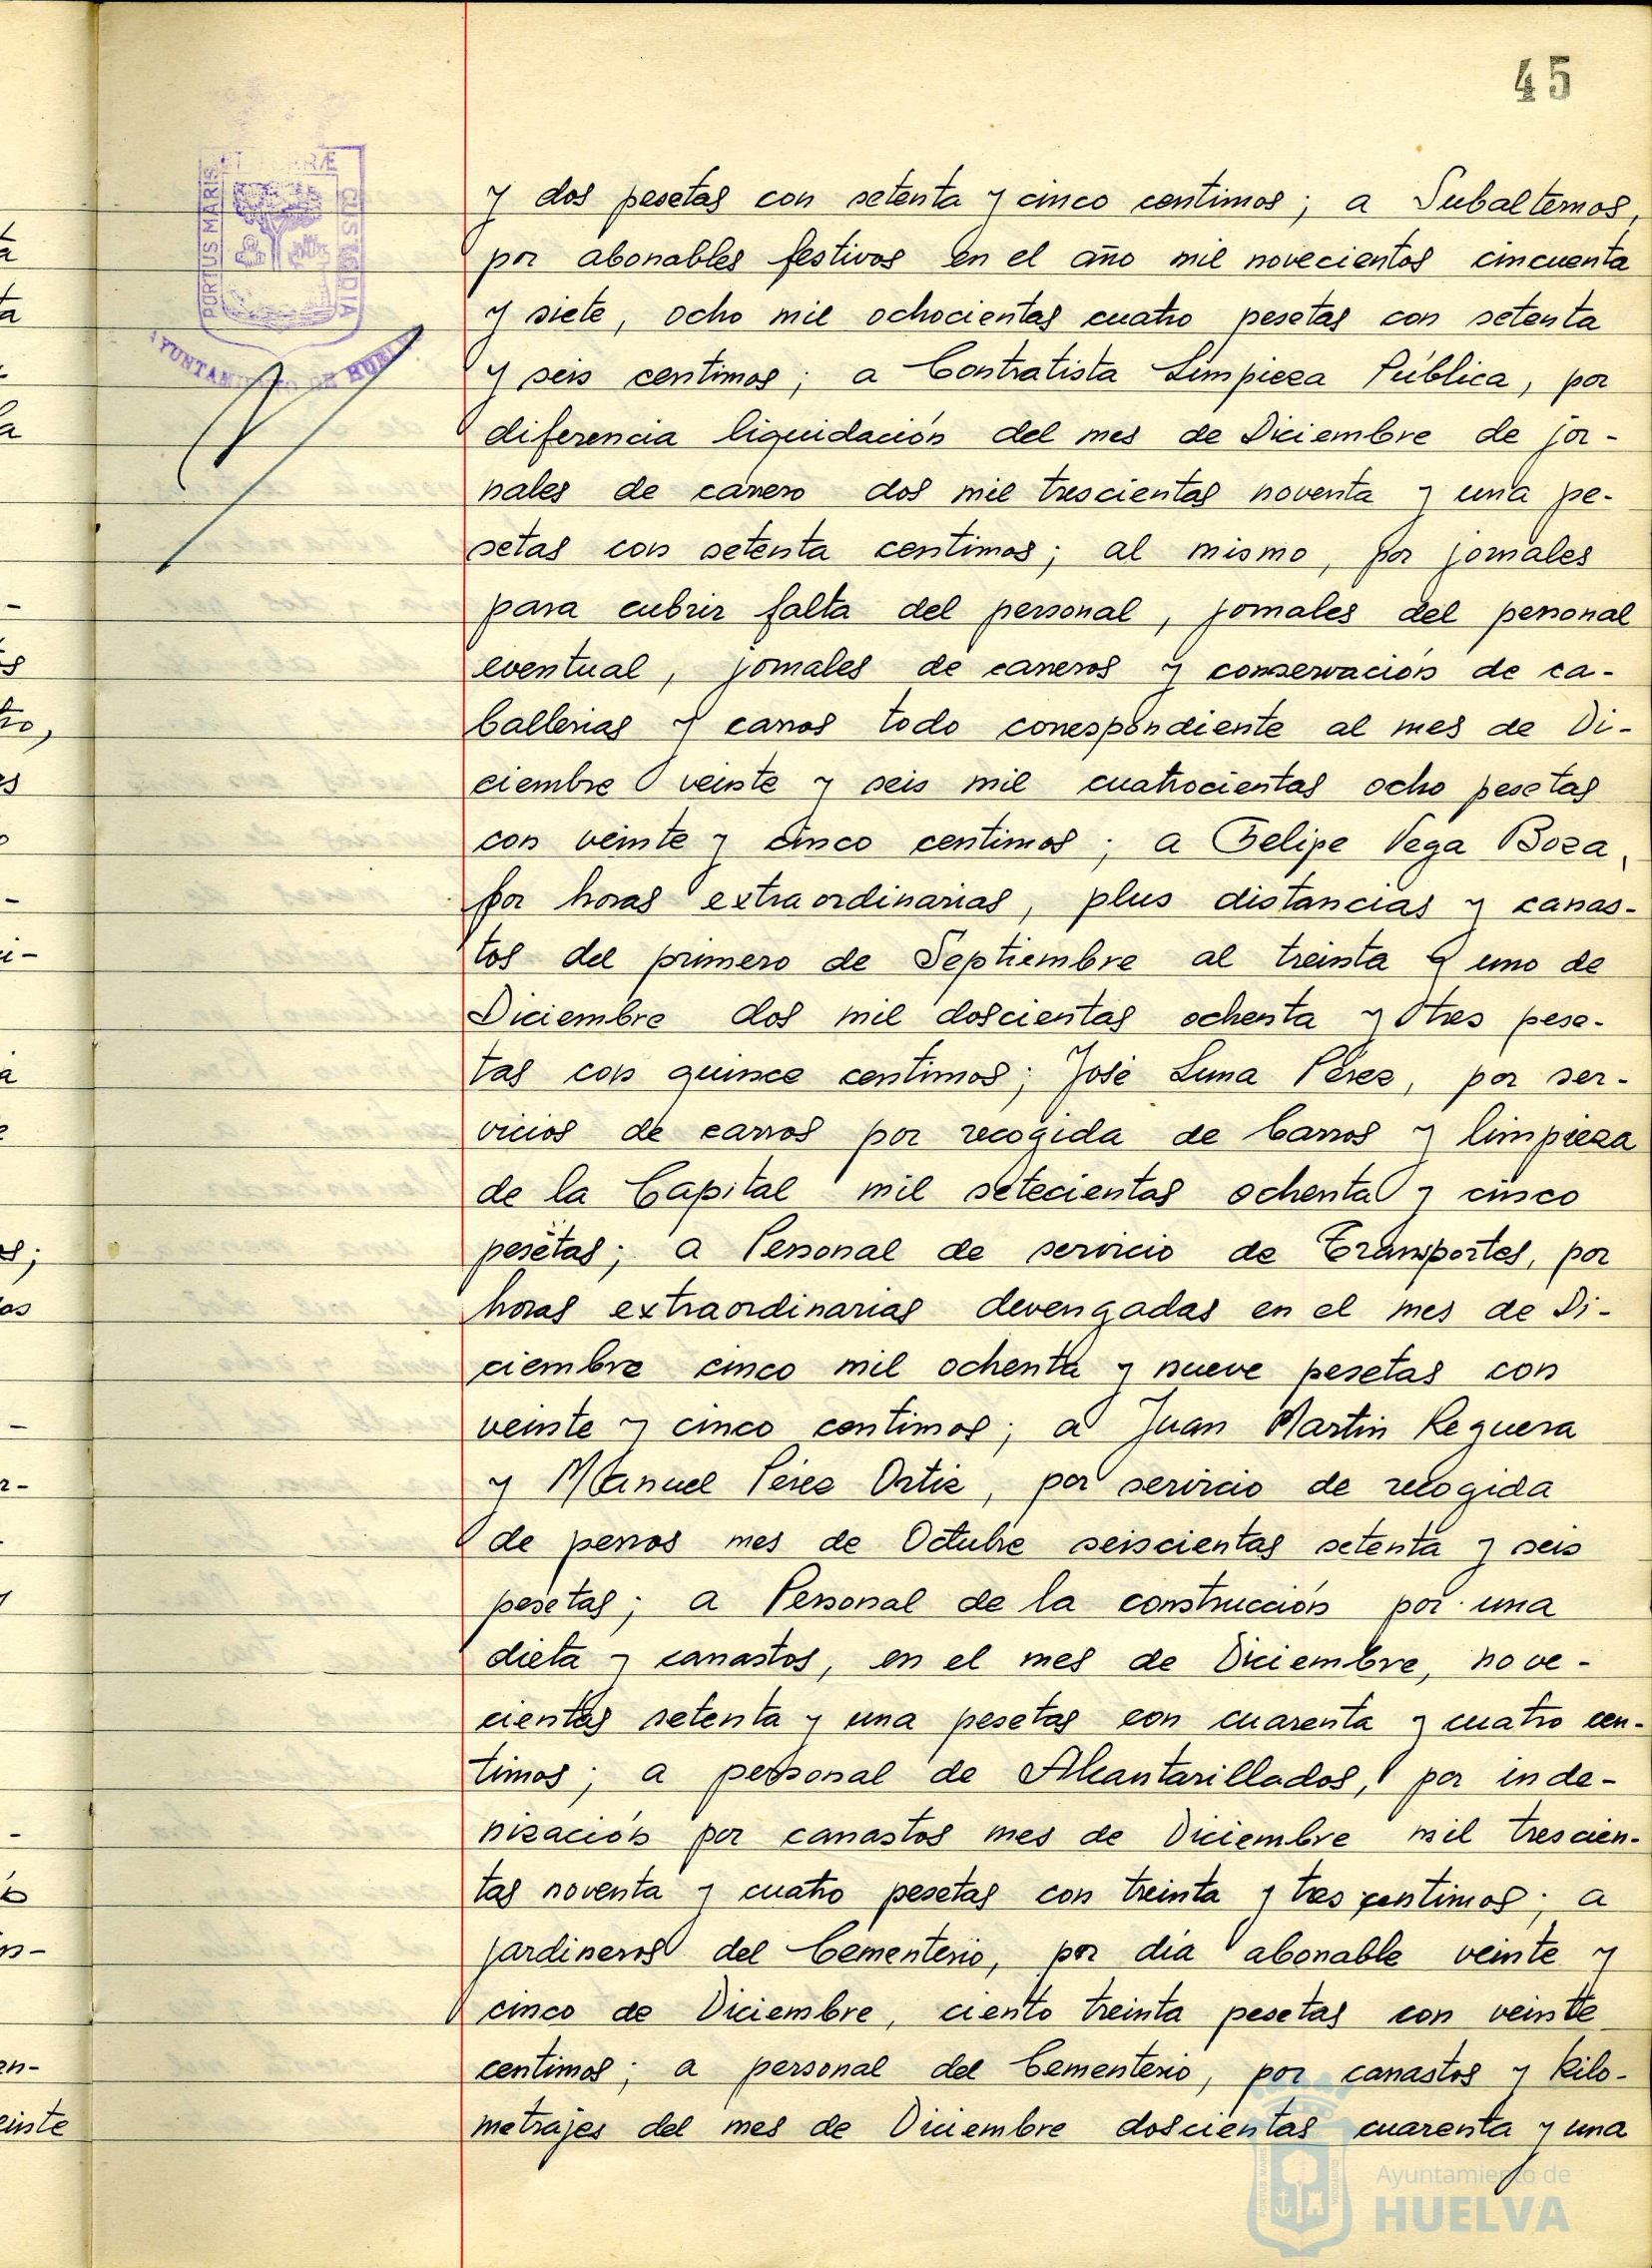 45
PORTUS MARIS ET TERRÆ CUSTODIA
AYUNTAMIENTO DE HUELVA
y dos pesetas con setenta y cinco centimos; a Subalternos,
por abonables festivos en el año mil novecientos cincuenta
y siete, ocho mil ochocientas cuatro pesetas con setenta
y seis centimos; a Contratista Limpieza Pública, por
diferencia liquidación del mes de Diciembre de jor-
nales de carrero dos mil trescientas noventa y una pe-
setas con setenta centimos; al mismo, por jornales
para cubrir falta del personal, jornales del personal
eventual, jornales de carreros y conservación de ca-
ballerias y carros todo correspondiente al mes de Di-
ciembre veinte y seis mil cuatrocientas ocho pesetas
con veinte y cinco centimos; a Felipe Vega Boza,
por horas extraordinarias, plus distancias y canas-
tos del primero de Septiembre al treinta y uno de
Diciembre dos mil doscientas ochenta y tres pese-
tas con quince centimos; José Luna Pérez, por ser-
vicios de carros por recogida de barros y limpieza
de la Capital mil setecientas ochenta y cinco
pesetas; a Personal de servicio de Transportes, por
horas extraordinarias devengadas en el mes de Di-
ciembre cinco mil ochenta y nueve pesetas con
veinte y cinco centimos; a Juan Martin Requera
y Manuel Pérez Ortiz, por servicio de recogida
de perros mes de Octubre seiscientas setenta y seis
pesetas; a Personal de la construcción por una
dieta y canastos, en el mes de Diciembre, nove-
cientas setenta y una pesetas con cuarenta y cuatro cen-
timos; a personal de Alcantarillados, por inde-
nización por canastos mes de Diciembre mil trescien-
tas noventa y cuatro pesetas con treinta y tres centimos; a
jardineros del Cementerio, por dia abonable veinte y
cinco de Diciembre, ciento treinta pesetas con veinte
centimos; a personal del Cementerio, por canastos y kilo-
metrajes del mes de Diciembre doscientas cuarenta y una
Ayuntamiento de
HUELVA